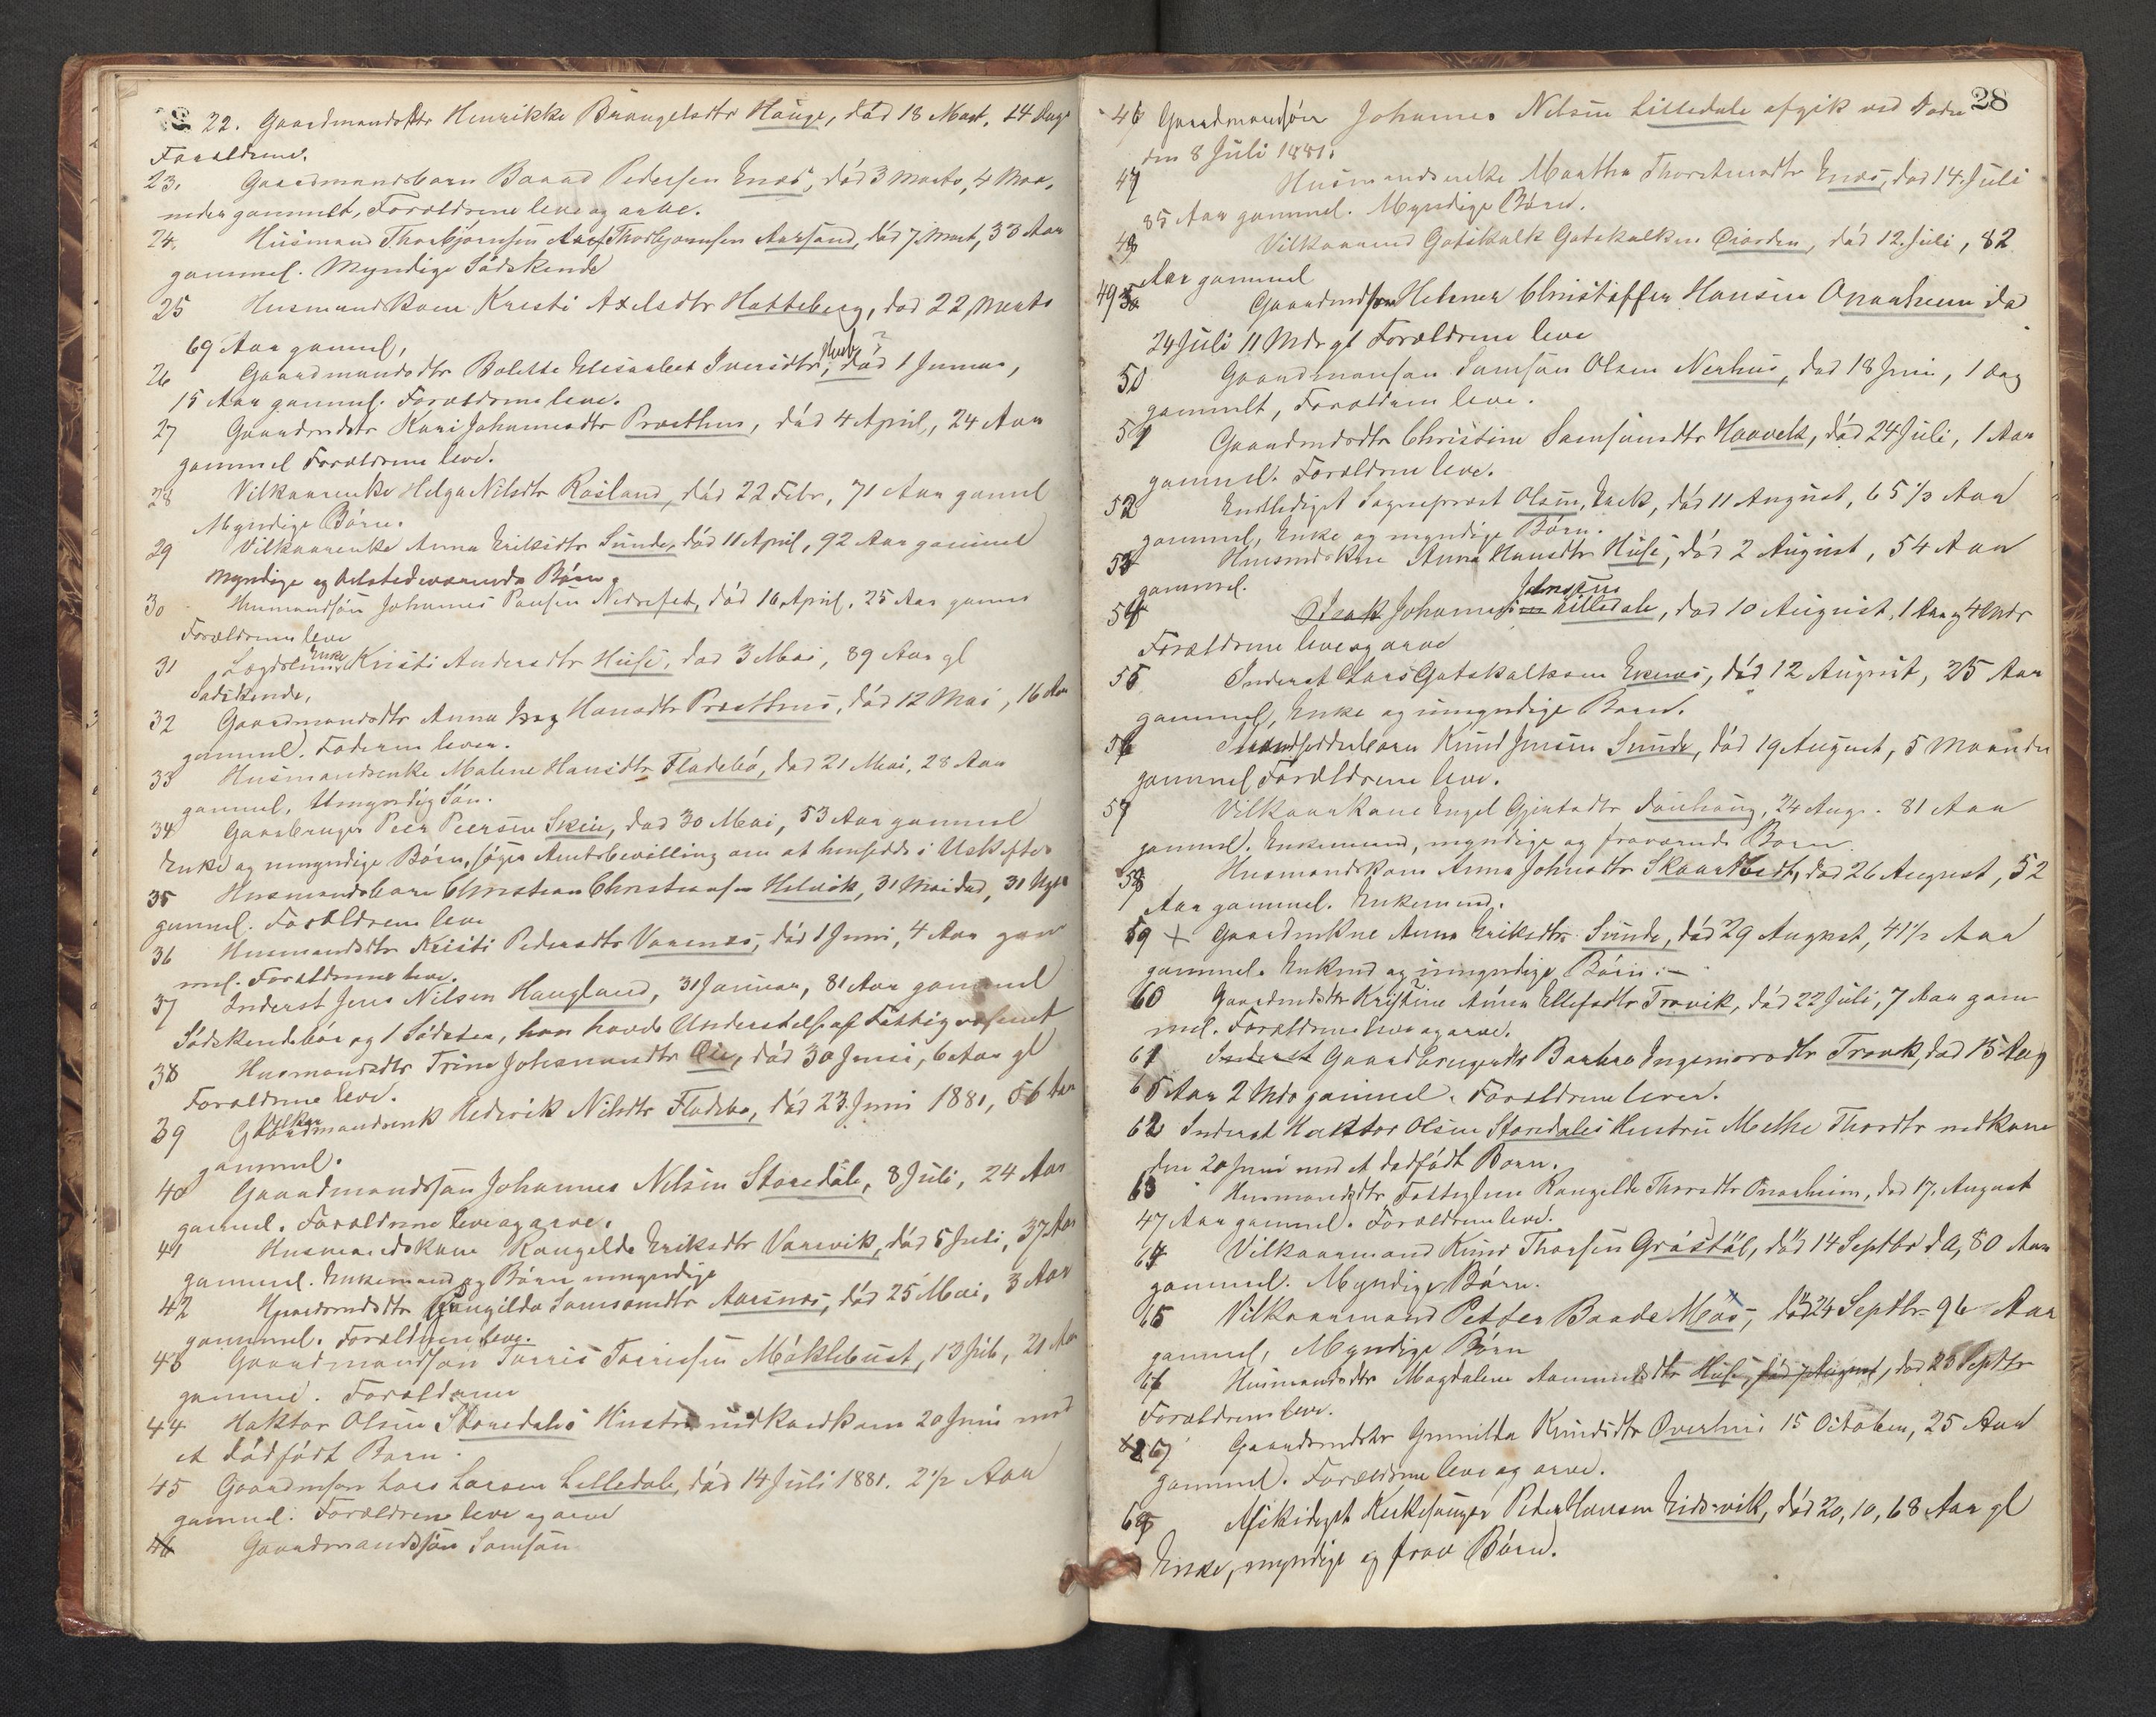 22. Gaardmandsdtr Henrikke Brangelsdtr Hauge, död 18 Mart, 14 Dage
Forældrene.
23. Gaardmandsbarn Baard Pedersen Enæs, död 3 Marts, 4 Maa-
neder gammelt, Forældrene leve og arve.
24. Husmand Thorbjørnsen Thorbjørnsen Aarsand, död 7 Mart, 33 Aar
gammel. Myndige Södskende
25 Husmandskone Kristi Axelsdtr Hatteberg, död 22 Marts
69 Aar gammel,
26 Gaardmandsdtr Bolette Elisabet Iversdtr, död 1 Januar,
15 Aar gammel. Forældrene leve.
27 Gaardmdsdtr Kari Johannesdtr Præsthus, död 4 April, 24 Aar
gammel Forældrene leve.
28 Vilkaarenke Helga Nilsdtr Røsland, död 22 Febr, 71 Aar gammel
Myndige Börn.
29 Vilkaarenke Anna Eriksdtr Sunde, död 11 April, 92 Aar gammel
Myndige og tilstedeværende Börn.
30 Husmandsön Johannes Paulsen Nedrefet, död 16 April, 25 Aar gammel
Forældrene leve
31 Lægdslem Enke Kristi Andersdtr Huse, död 3 Mai, 89 Aar gl
Södskende,
32 Gaardmandsdtr Anna Hansdtr Præsthus, död 12 Mai, 16 Aar
gammel. Faderen lever.
33 Husmandsenke Malene Hansdtr Fladebö, död 21 Mai, 28 Aar
gammel, Umyndig Sön.
34 Gaardbruger Peer Peersen Skeie, död 30 Mai, 53 Aar gammel
Enke og umyndige Börn, söger Amtsbevilling om at hensidde i Uskiftet
35 Husmandsbarn Christian Christiansen Helvik, 31 Mai död, 31 Uger
gammel. Forældrene leve
36 Husmandsdtr Kristi Pedersdtr Varenæs, död 1 Juni, 4 Aar gam
mel. Forældrene leve.
37 Inderst Jens Nilsen Haugland, 31 Januar, 81 Aar gammel
Södskendebörn og 1 Södster, han havde Understöttelse af Fattigvæsenet
38 Husmandsdtr Trine Johannesdtr Öie, död 30 Juni, 6 Aar gl
Forældrene leve.
39 Gaardmandsenk Vilkaar Hedevik Nilsdtr Fladebö, död 23 Juni 1881, 56 Aar
gammel.
40 Gaardmandssön Johannes Nilsen Storedale, 8 Juli, 24 Aar
gammel. Forældrene leve og arve.
41 Husmandskone Rangelde Eriksdtr Varevik, död 5 Juli, 37 Aar
gammel. Enkemand og Börn umyndige
42 Gaardmdsdtr Gungilda Samsonsdtr Aarsnes, död 25 Mai, 3 Aar
gammel. Forældrene leve.
43 Gaardmandssön Torris Torrisen Møklebust, 13 Juli, 21 Aar
gammel. Forældrene
44 Haktor Olsen Storedales Hustru nedkom 20 Juni med
et dödfödt Barn.
45 Gaardmsön Lars Larsen Lilledale, död 14 Juli 1881. 2 1/2 Aar
gammel. Forældrene leve og arve
46 Gaardmandssön Samson
28
46 Gaardmandsön Johannes Nelsen Lilledale afgik ved Döden
den 8 Juli 1881.
47 Husmandsenke Martha Thorstensdtr Enæs, död 14. Juli
85 Aar gammel. Myndige Börn.
48 Vilkaarmand Gotskalk Gotskalksen Öiarden, död 12. Juli, 82
Aar gammel
49 Gaardmdsön Helmer Christoffer Hansen Onarheim död
24 Juli 11 Mdr gl Forældrene leve
50 Gaardmansön Samson Olsen Nerhus, död 18 Juni, 1 Dag
gammelt, Forældrene leve.
51 Gaardmdsdtr Christine Samsonsdtr Haavik, död 24 Juli, 1 Aar
gammel. Forældrene leve.
52 Entlediget Sognepræst Olsen, Enek, död 11 August, 65 1/3 Aar
gammel, Enke og myndige Börn.
53 Husmdskone Anna Hansdtr Huse, död 2 August, 54 Aar
gammel.
54 Isak Johannesen Johannes Lilledale, död 10 August, 1 Aar og 4 Mdr
Forældrene leve og arve
55 Inderst Lars Gotskalksen Ekenæs, död 12 August, 35 Aar
gammel, Enke og umyndige Barn.
56 Strandsidderbarn Knud Jensen Sunde, död 19 August, 5 Maaneder
gammel Forældrene leve.
57 Vilkaarkone Engel Gjertsdtr Döuhaug, 24 Aug. 81 Aar
gammel. Enkemand, myndige og fraværende Börn.
58 Husmandskone Anna Johnsdtr Skaarstvedt, död 26 August, 52
Aar gammel. Enkemand.
59 + Gaardmkne Anna Eriksdtr Sunde, död 29 August, 41 1/2 Aar
gammel. Enkmd og umyndige Börn. –
60 Gaardmdsdtr Kristine Anna Ellefsdtr Trovik, död 22 Juli, 7 Aar gam
mel. Forældrene leve og arve.
61 Inderst Gaardbrugerdtr Barbro Ingemorsdtr Trovik, död 15 Aug
5 Aar 2 Mdr gammel. Forældrene lever.
62 Inderst Haktor Olsen Storedales Hustru Methe Thorsdtr nedkom
den 20 Juni med et dödfödt Barn.
63 Husmandsdtr, Fattiglem Rangelde Thorsdtr Onarheim, död 17. August
47 Aar gammel. Forældrene leve.
64 Vilkaarmand Knud Thorsen Gråstöl, död 14 Septbr d A, 80 Aar
gammel. Myndige Börn.
65 Vilkaarmand Petter Baade Mæs, död 24 Septbr 96 Aar
gammel, Myndige Börn
66 Husmandsdtr Magdalene Aamundsdtr Huse, död 7 August, död 23 Septbr
Forældrene leve.
67 Gaardmdsdtr Gunnilda Knudsdtr Overhus 15 October, 25 Aar
gammel. Forældrene leve og arve.
68 Afskediget Kirkesanger Peder Hansen Eidsvik, död 20, 10, 68 Aar gl
Enke, myndige og fravr Börn.